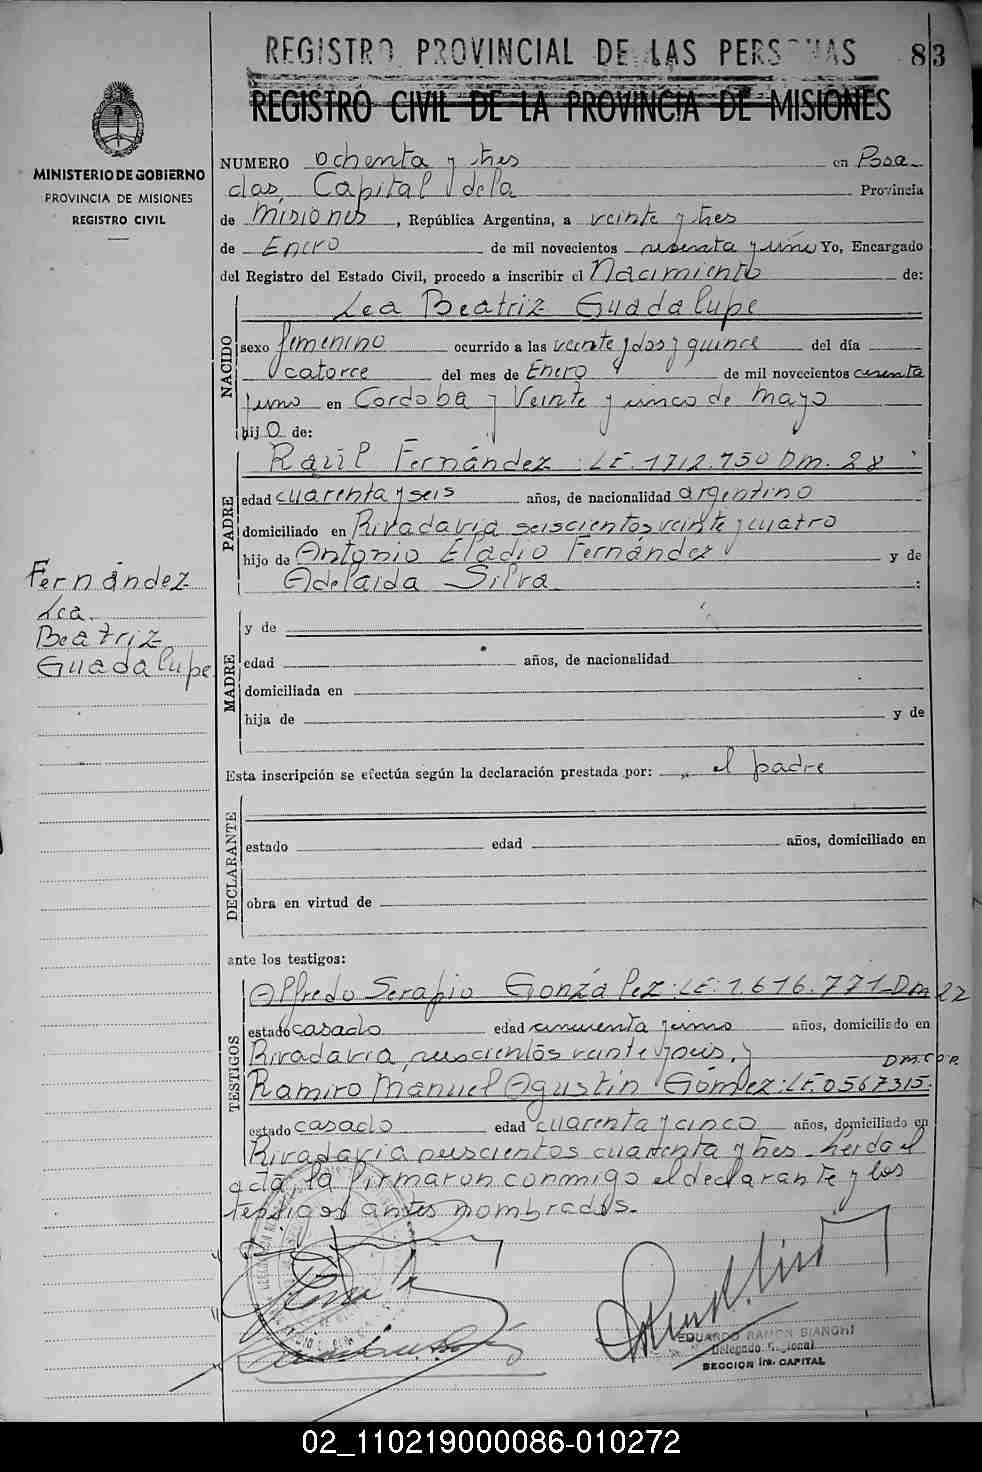 REGISTRO PROVINCIAL DE LAS PERSONAS 83
REGISTRO CIVIL DE LA PROVINCIA DE MISIONES
MINISTERIO DE GOBIERNO
PROVINCIA DE MISIONES
REGISTRO CIVIL
NUMERO ochenta y tres en Posa-
das, Capital de la Provincia
de Misiones, República Argentina, a veinte y tres
de Enero de mil novecientos sesenta y uno Yo, Encargado
del Registro del Estado Civil, procedo a inscribir el Nacimiento de:
Lea Beatriz Guadalupe
NACIDO
sexo femenino ocurrido a las veinte y dos y quince del día
catorce del mes de Enero de mil novecientos sesenta
y uno en Cordoba y Veinte y cinco de Mayo
hijo de:
Raúl Fernández L.E. 1712.750 D.M. 28
PADRE
edad cuarenta y seis años, de nacionalidad argentino
domiciliado en Rivadavia seiscientos veinte y cuatro
hijo de Antonio Eladio Fernández y de
Adelaida Silva :
Fernández
Lea
Beatriz
Guadalupe
MADRE
y de
edad años, de nacionalidad
domiciliada en
hija de y de
Esta inscripción se efectúa según la declaración prestada por: el padre
DECLARANTE
estado edad años, domiciliado en
obra en virtud de
ante los testigos:
TESTIGOS
Alfredo Serapio González: L.E. 1.616.771-D.M 22
estado casado edad cincuenta y uno años, domiciliado en
Rivadavia, veinte y
D.M.
Ramiro Manuel Agustín Gómez: L.E. 0567315.
estado casado edad cuarenta y cinco años, domiciliado en
Rivadavia cuarenta y tres. Leida el
acta, la firmaron conmigo el declarante y los
testigos antes nombrados.-
EDUARDO RAMON BIANCHI
Delegado Regional
SECCION 1ra. CAPITAL
02_110219000086-010272